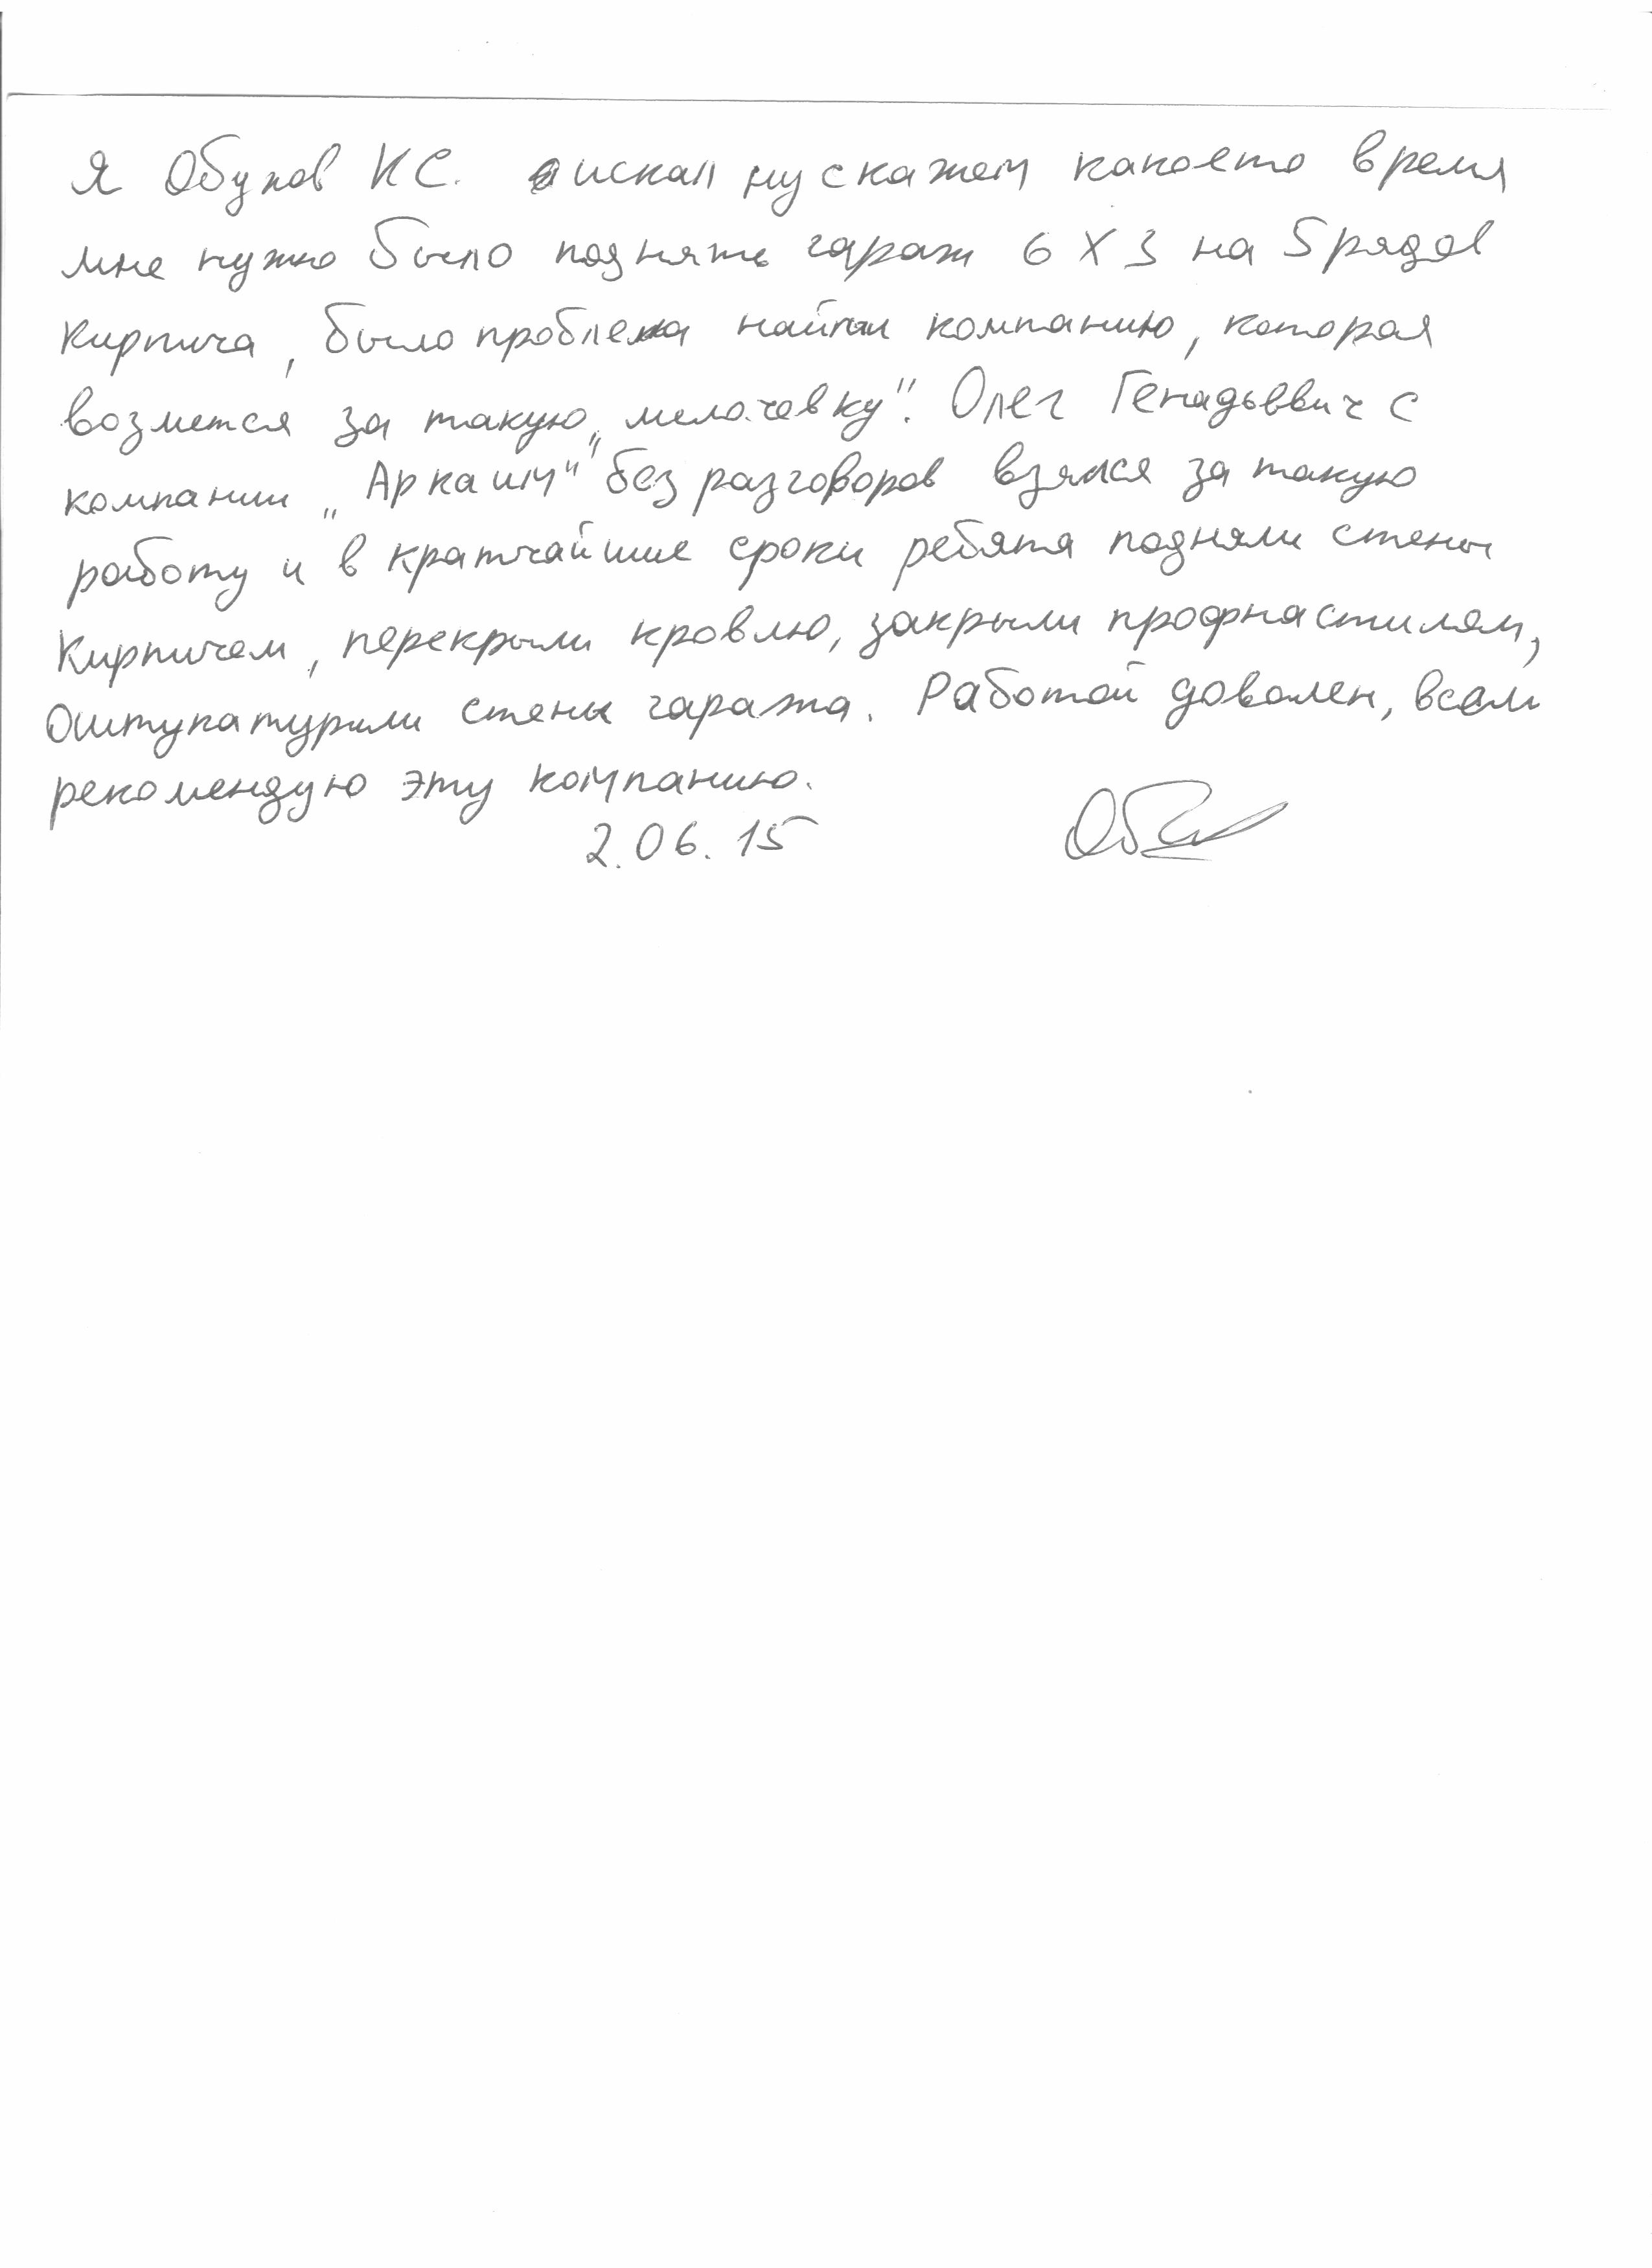 Я Обухов К С. искал ну скажем какоето время
мне нужно было поднять гараж 6 X 3 на 5 рядов
кирпича, было проблема найти компанию, которая
возмется за такую „мелочевку". Олег Генадьевич с
компании „Аркаим" без разговоров взялся за такую
работу и в кратчайшие сроки ребята подняли стены
Кирпичем, перекрыли кровлю, закрыли профнастилям,
Оштукатурили стены гаража. Работой доволен, всем
рекомендую эту компанию.
2.06.15